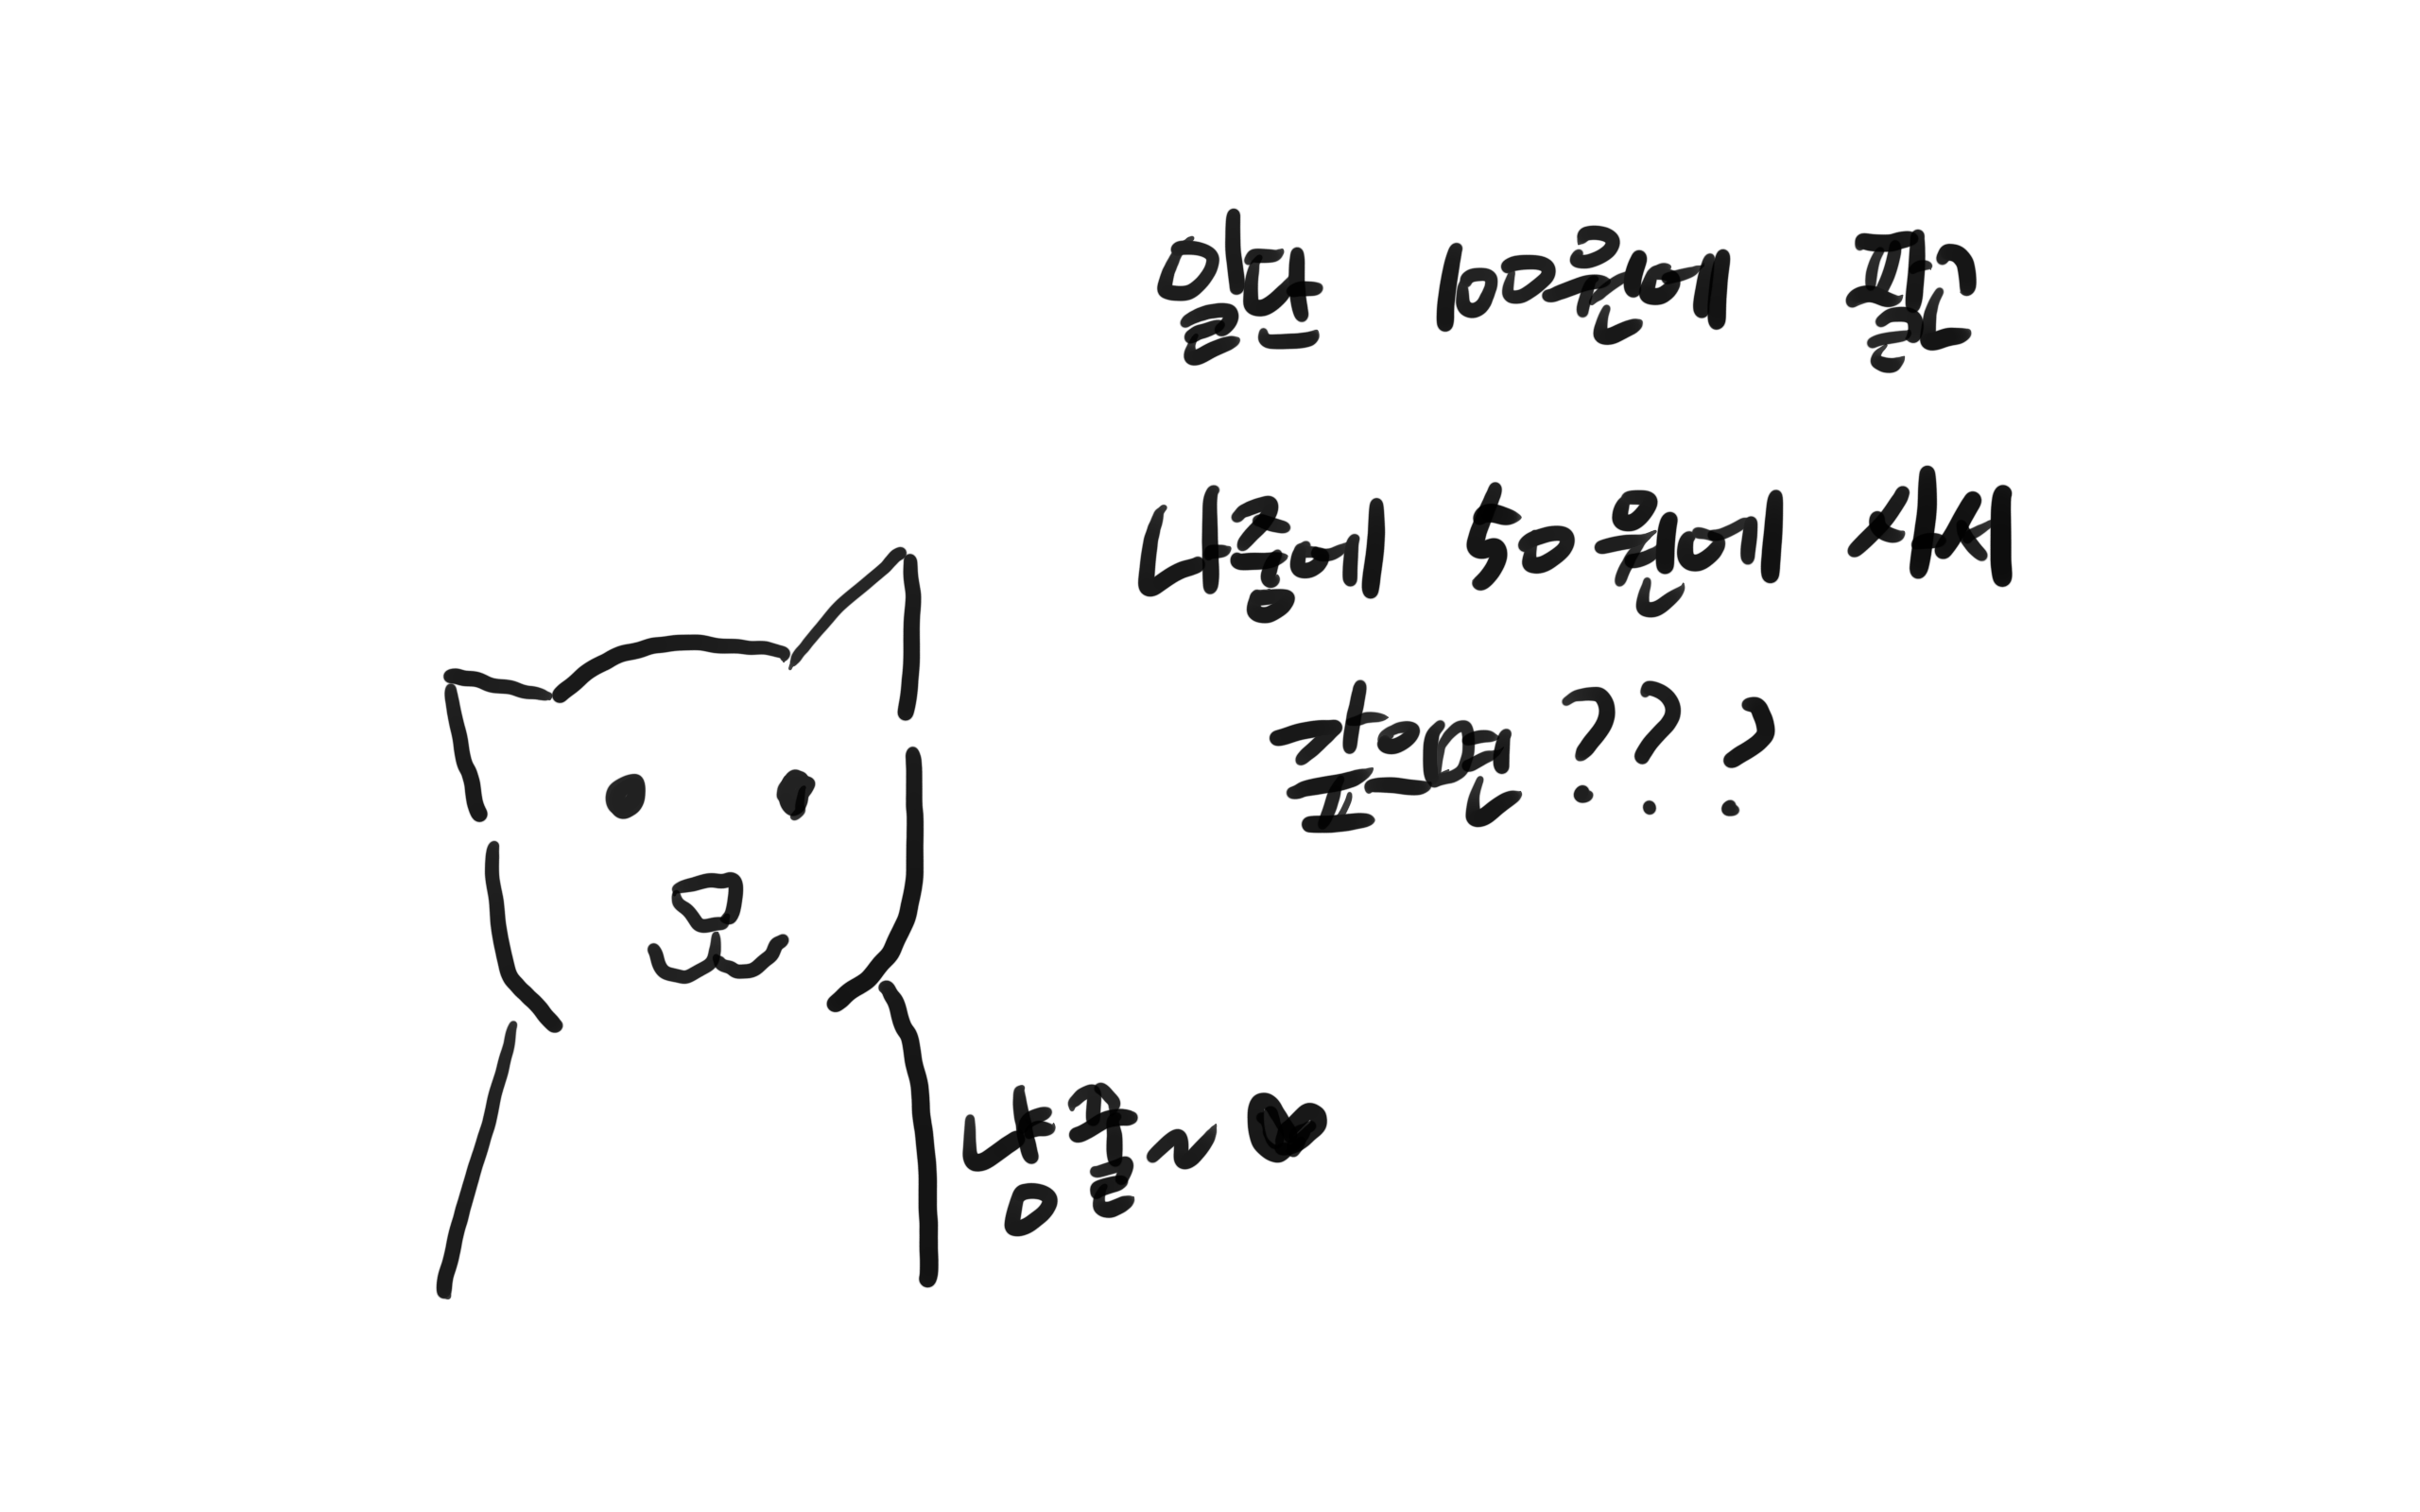 일단 100원에 팔고
나중에 50원에 사서
갚으면???
냥줍~♥